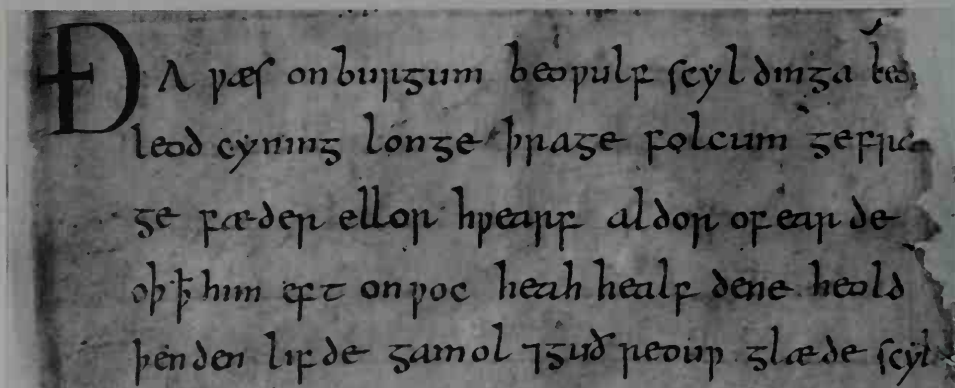 ÐA ƿæs onburgum beoƿulf scyl dinga
leod cyning longe þrage folcum gefræ
ge fæder ellor hƿearf aldor of earde
oþꝥ him eft onƿoc heah healf dene heold
þenden lifde gamol ⁊guð reouƿ glæde scyl